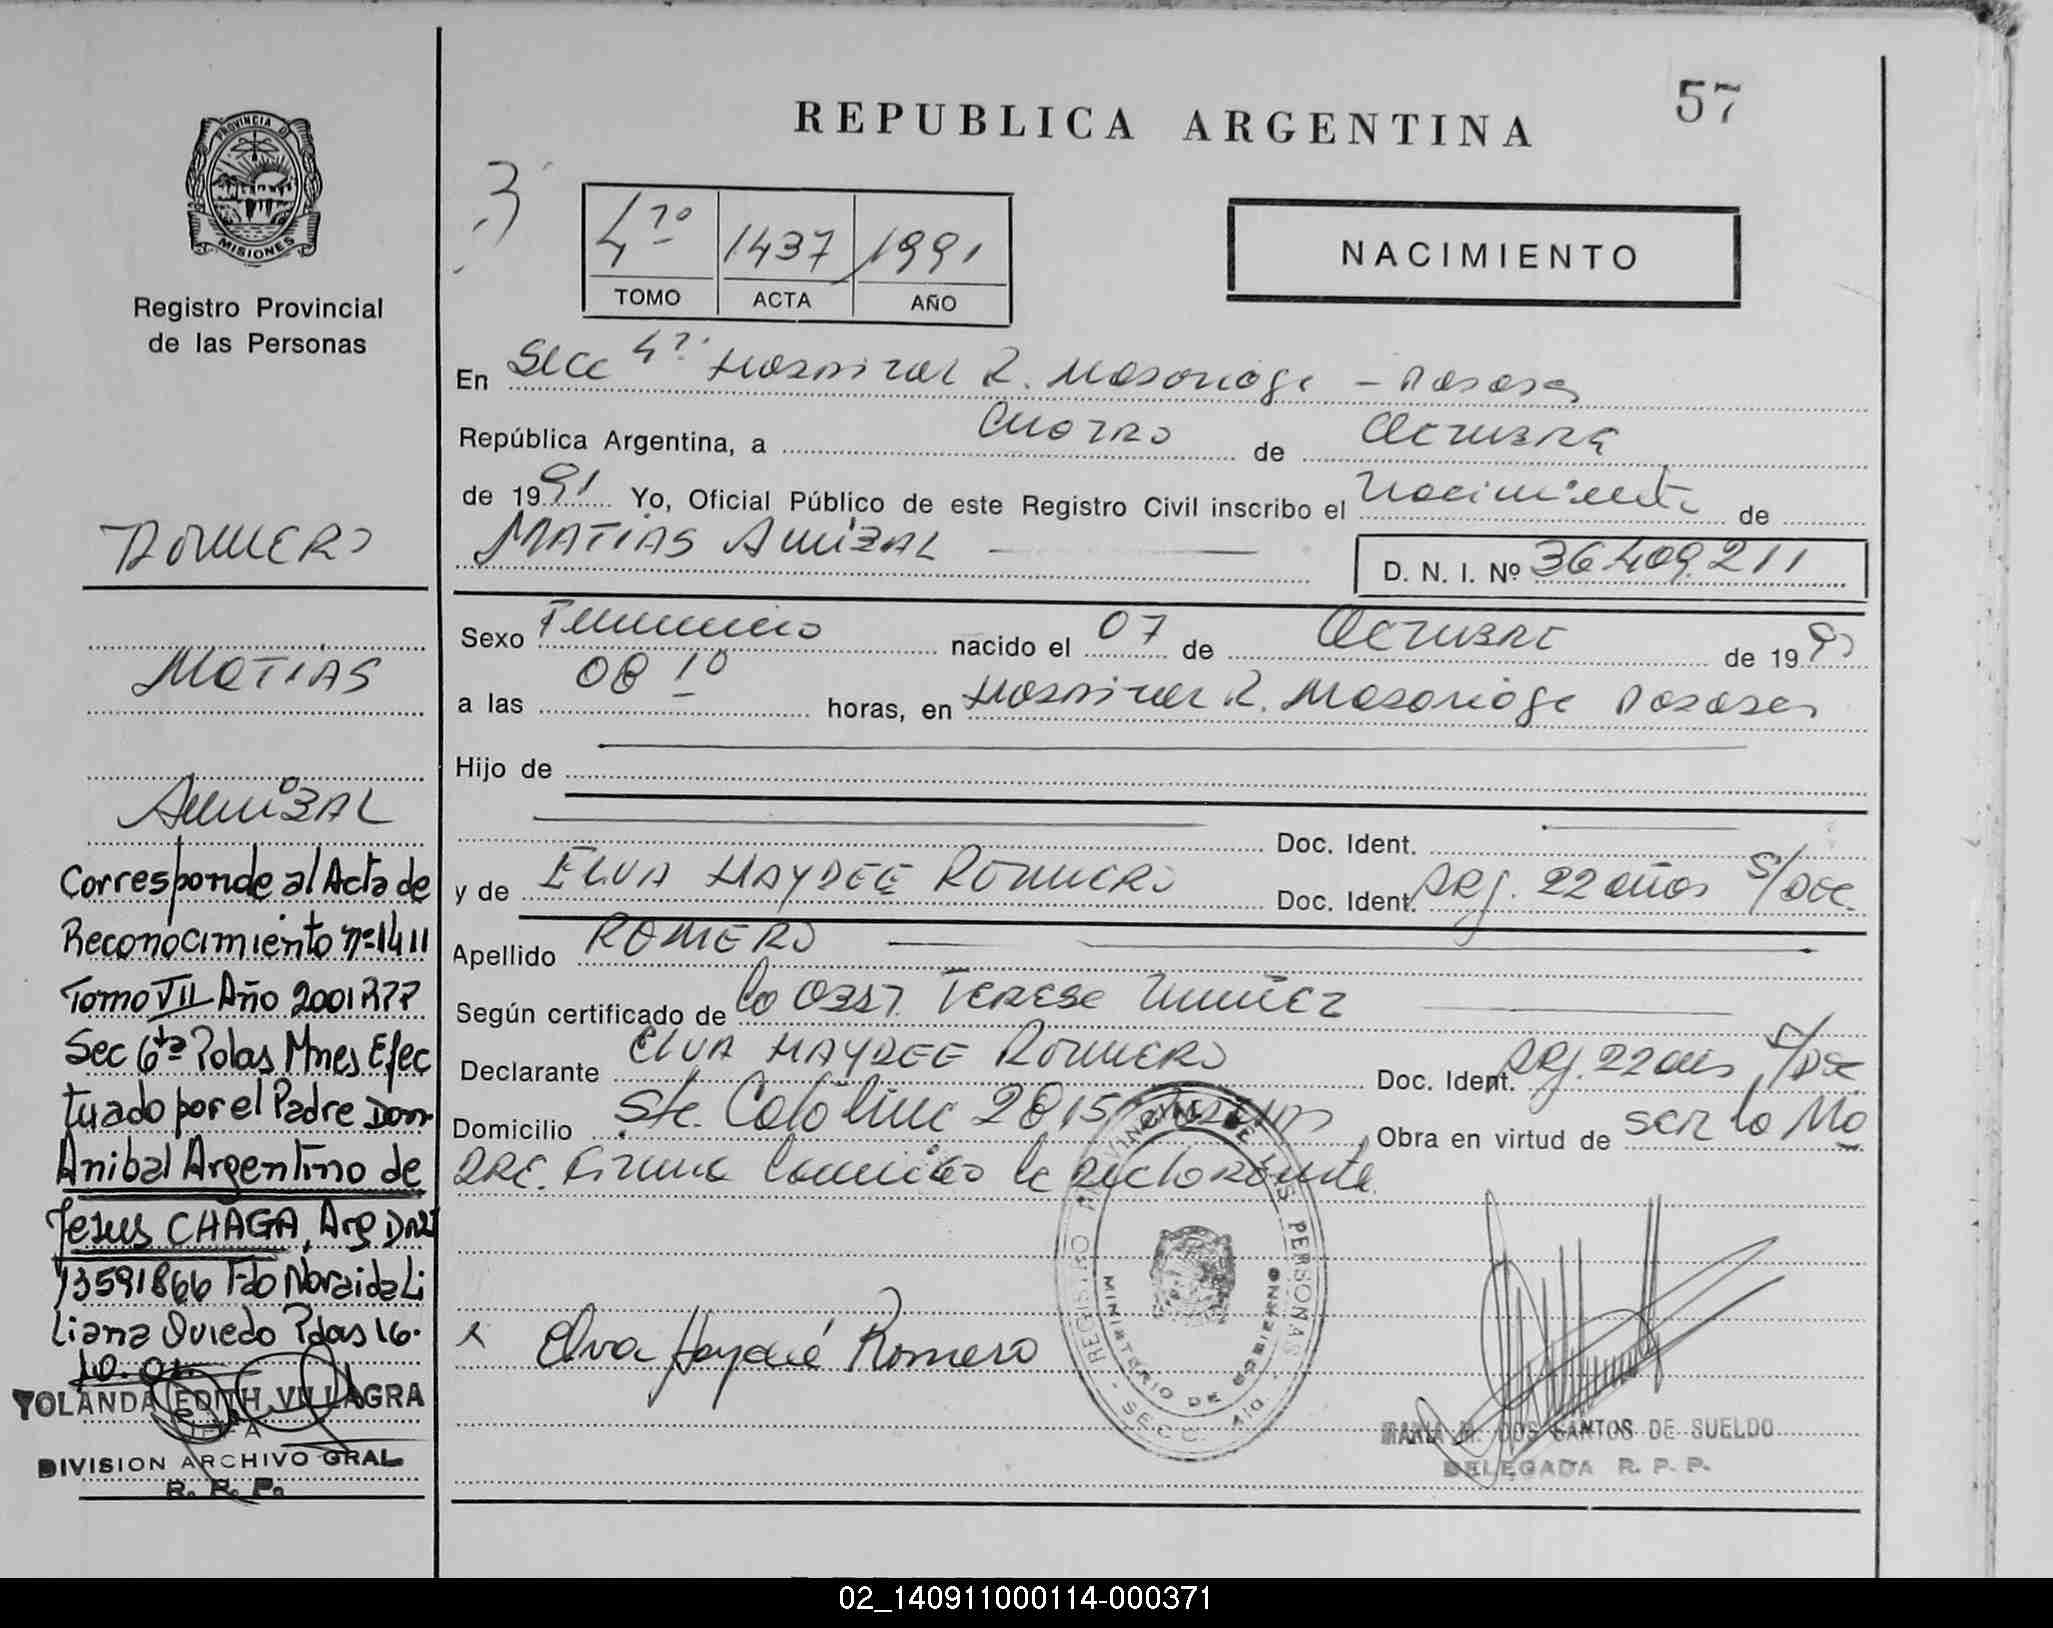 57
REPUBLICA ARGENTINA
PROVINCIA DE
MISIONES
Registro Provincial
de las Personas
3
4º 1437 1991
TOMO ACTA AÑO
NACIMIENTO
En Secc 4ª Hospital R. Madariaga - Posadas
República Argentina, a Cuatro de Octubre
de 1991 Yo, Oficial Público de este Registro Civil inscribo el Nacimiento de
MATIAS ANIBAL
D. N. I. Nº 36.409.211
Sexo Femenino nacido el 07 de Octubre de 19
a las 08 10 horas, en Hospital R. Madariaga Posadas
Hijo de
Doc. Ident.
y de ELVA HAYDEE ROMERO Doc. Ident. ARG. 22 años S/DOC.
Apellido ROMERO
Según certificado de la OBST. TERESA
Declarante ELVA HAYDEE ROMERO Doc. Ident. ARG. 22 años S/DOC
Domicilio Sta. Catalina 2815 Obra en virtud de ser la Ma
DRE. Firma conmigo la declarante
Elva Haydeé Romero
REGISTRO PROVINCIAL DE LAS PERSONAS
MINISTERIO DE GOBIERNO
SECC.
MARIA M. DOS SANTOS DE SUELDO
DELEGADA R. P. P.
ROMERO
MATIAS
ANIBAL
Corresponde al Acta de
Reconocimiento nº 1411
Tomo VII Año 2001 RPP
Sec 6ta Pdas Mnes Efec
tuado por el Padre Don
Anibal Argentino de
Jesus CHAGA, Arg DNI
13591866 Fdo Noraida Li
liana Oviedo Pdas 16.
10.01.
YOLANDA EDITH VILLAGRA
JEFA
DIVISION ARCHIVO GRAL.
R. P. P.
02_140911000114-000371